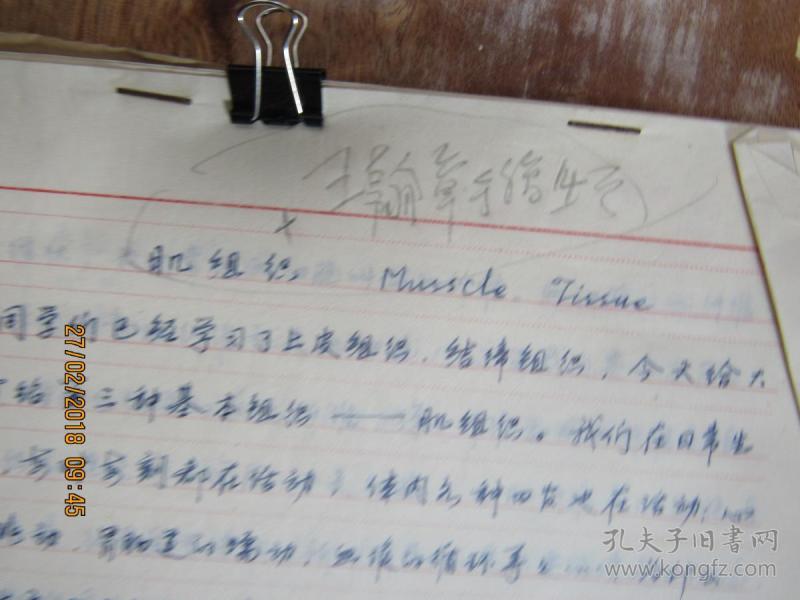 王翰章手稿4页
肌组织 Muscle Tissue
同学们已经学习了上皮组织、结缔组织,今天给大
第三种基本组织——肌组织。我们在日常生
时时刻刻都在活动;体内各种四官也在活动,
动、胃肠道的蠕动,血液的循环等
27/02/2018 09:45
孔夫子旧书网
www.kongfz.com